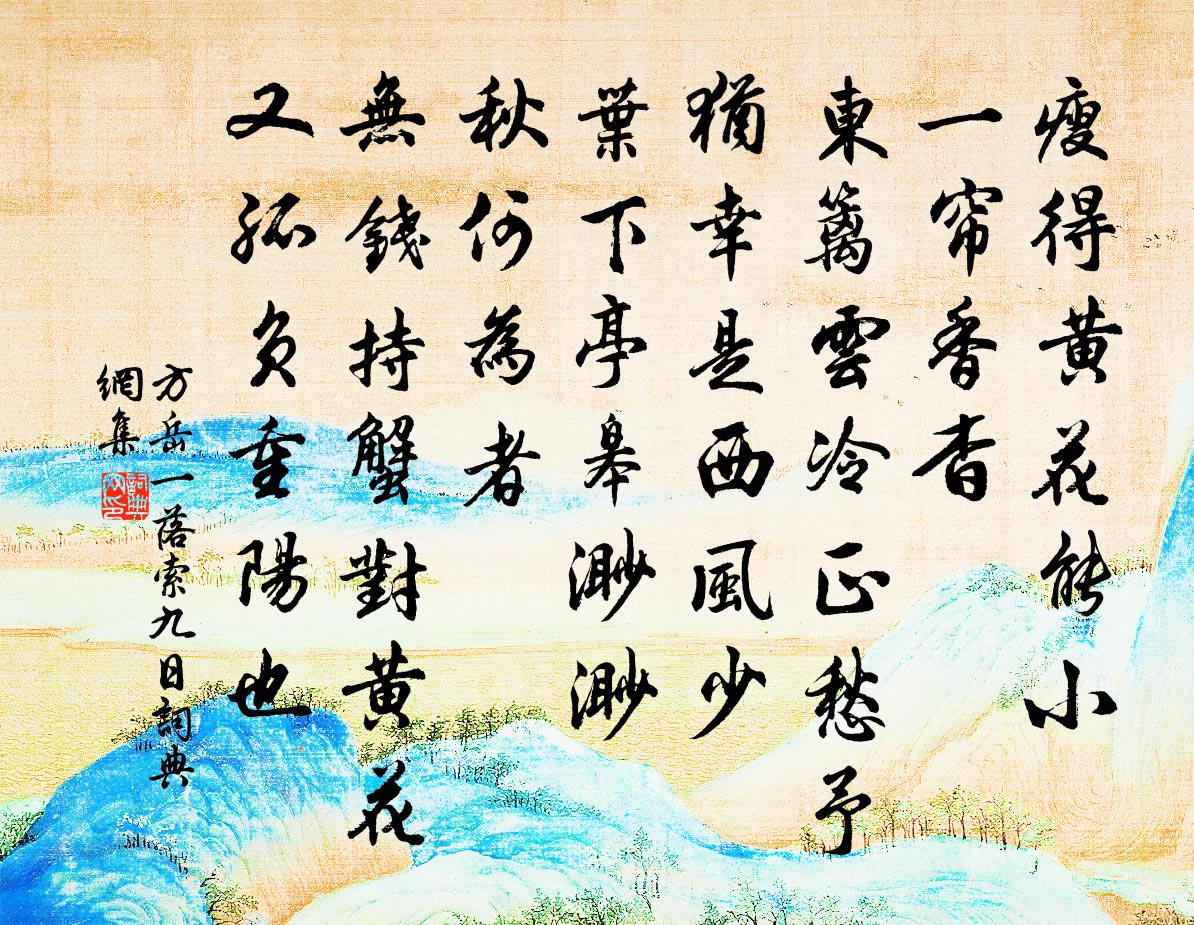 瘦得黄花能小
一帘香杳
東籬雲冷正愁予
猶幸是西風少
葉下亭皋渺渺
秋何為者
無錢持蟹對黄花
又孤負重陽也
方岳一落索九日詞典
網集
詞典
网印